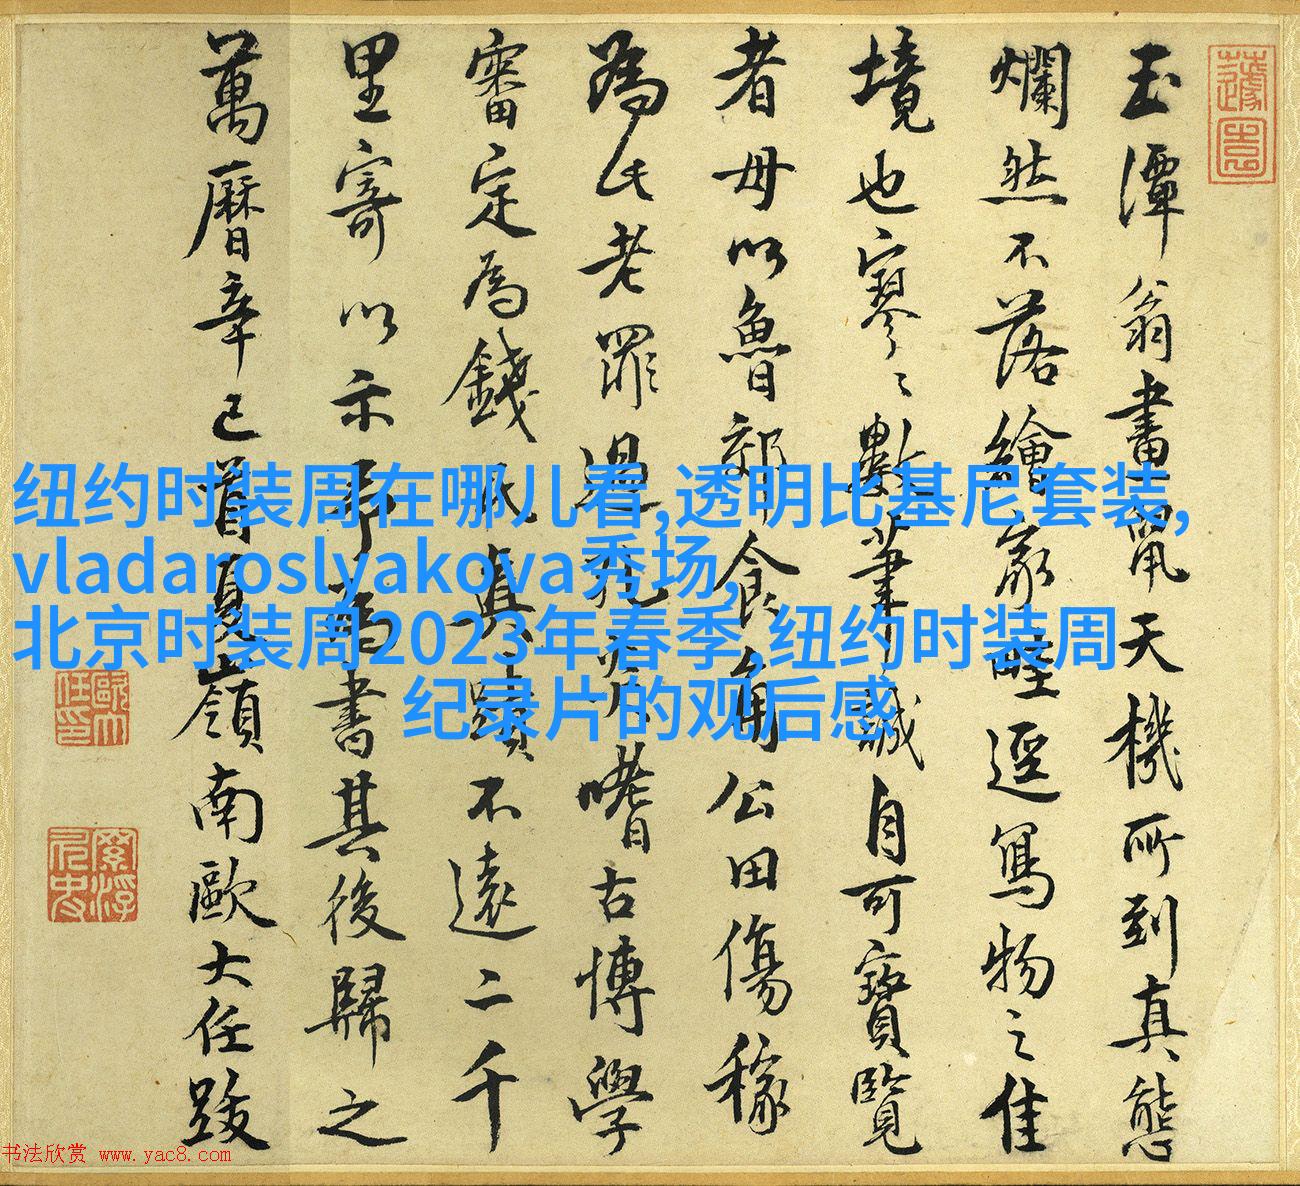 玉潭翁畫鼠天機所到真態
爛然不落繪家畦逕寫物之佳
境也寥々數筆誠自可寶覽
者毋以魯郊食角公田傷稼
為此老罪過孔炎嗜古博學
審定為錢氏真蹟不遠二千
里寄以示予為書其後歸之
萬曆辛巳首夏嶺南歐大任跋
歐大任印
纽约时装周在哪儿看,透明比基尼套装,
vladaroslyakova秀场,
北京时装周2023年春季,纽约时装周
纪录片的观后感
书法欣赏 www.yac8.com